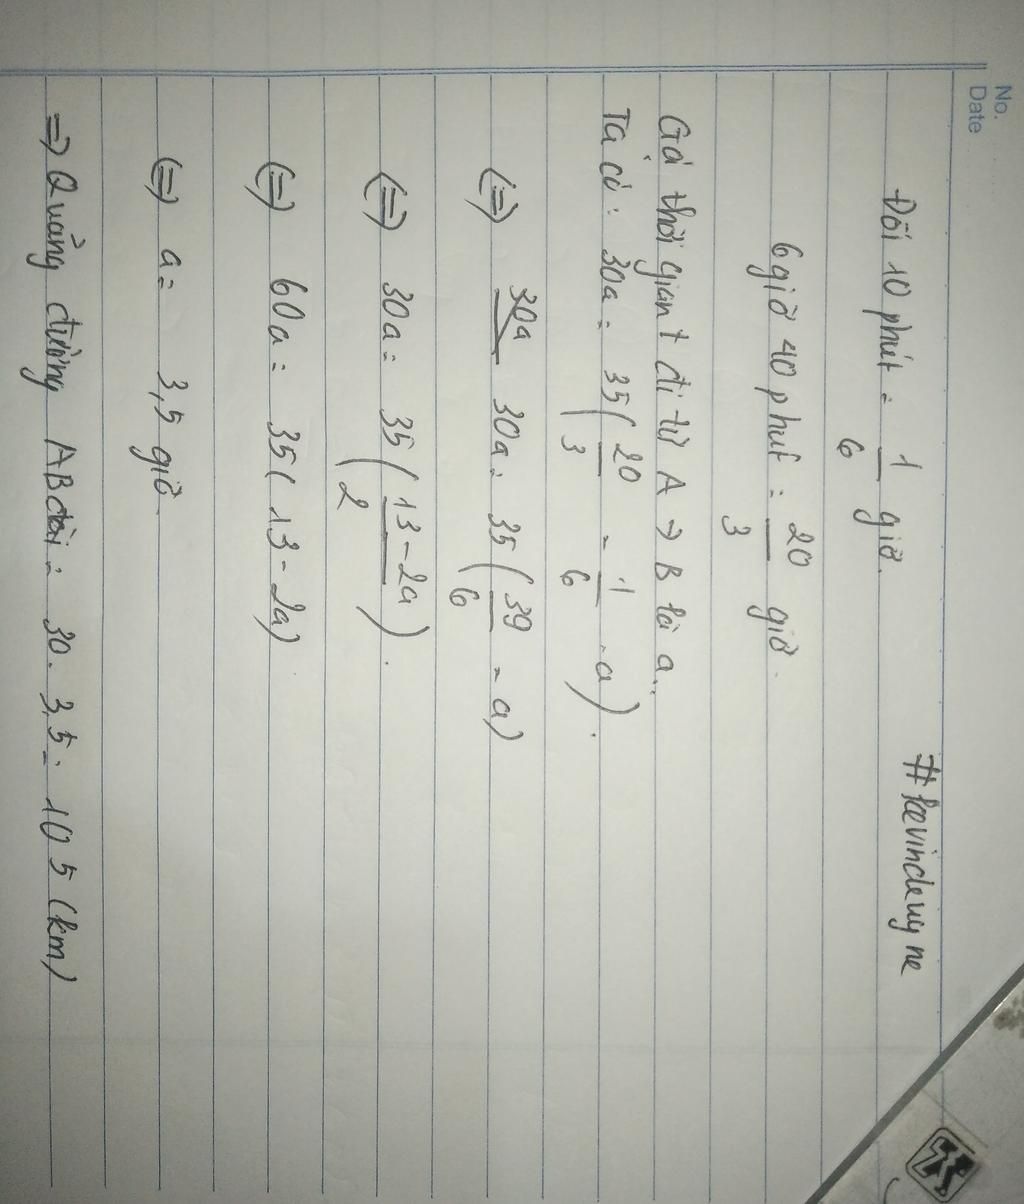 No.
Date
#kevindewyne
Đổi 10 phút = 1/6 giờ.
6 giờ 40 phút = 20/3 giờ.
Gọi thời gian t đi từ A → B là a.
Ta có: 30a = 35( 20/3 - 1/6 - a).
(=) 30a 30a = 35( 39/6 - a)
(=) 30a = 35( 13-2a/2 ).
(=) 60a = 35( 13 - 2a)
(=) a = 3,5 giờ.
=) Quãng đường AB dài = 30. 3,5 = 105 (km)